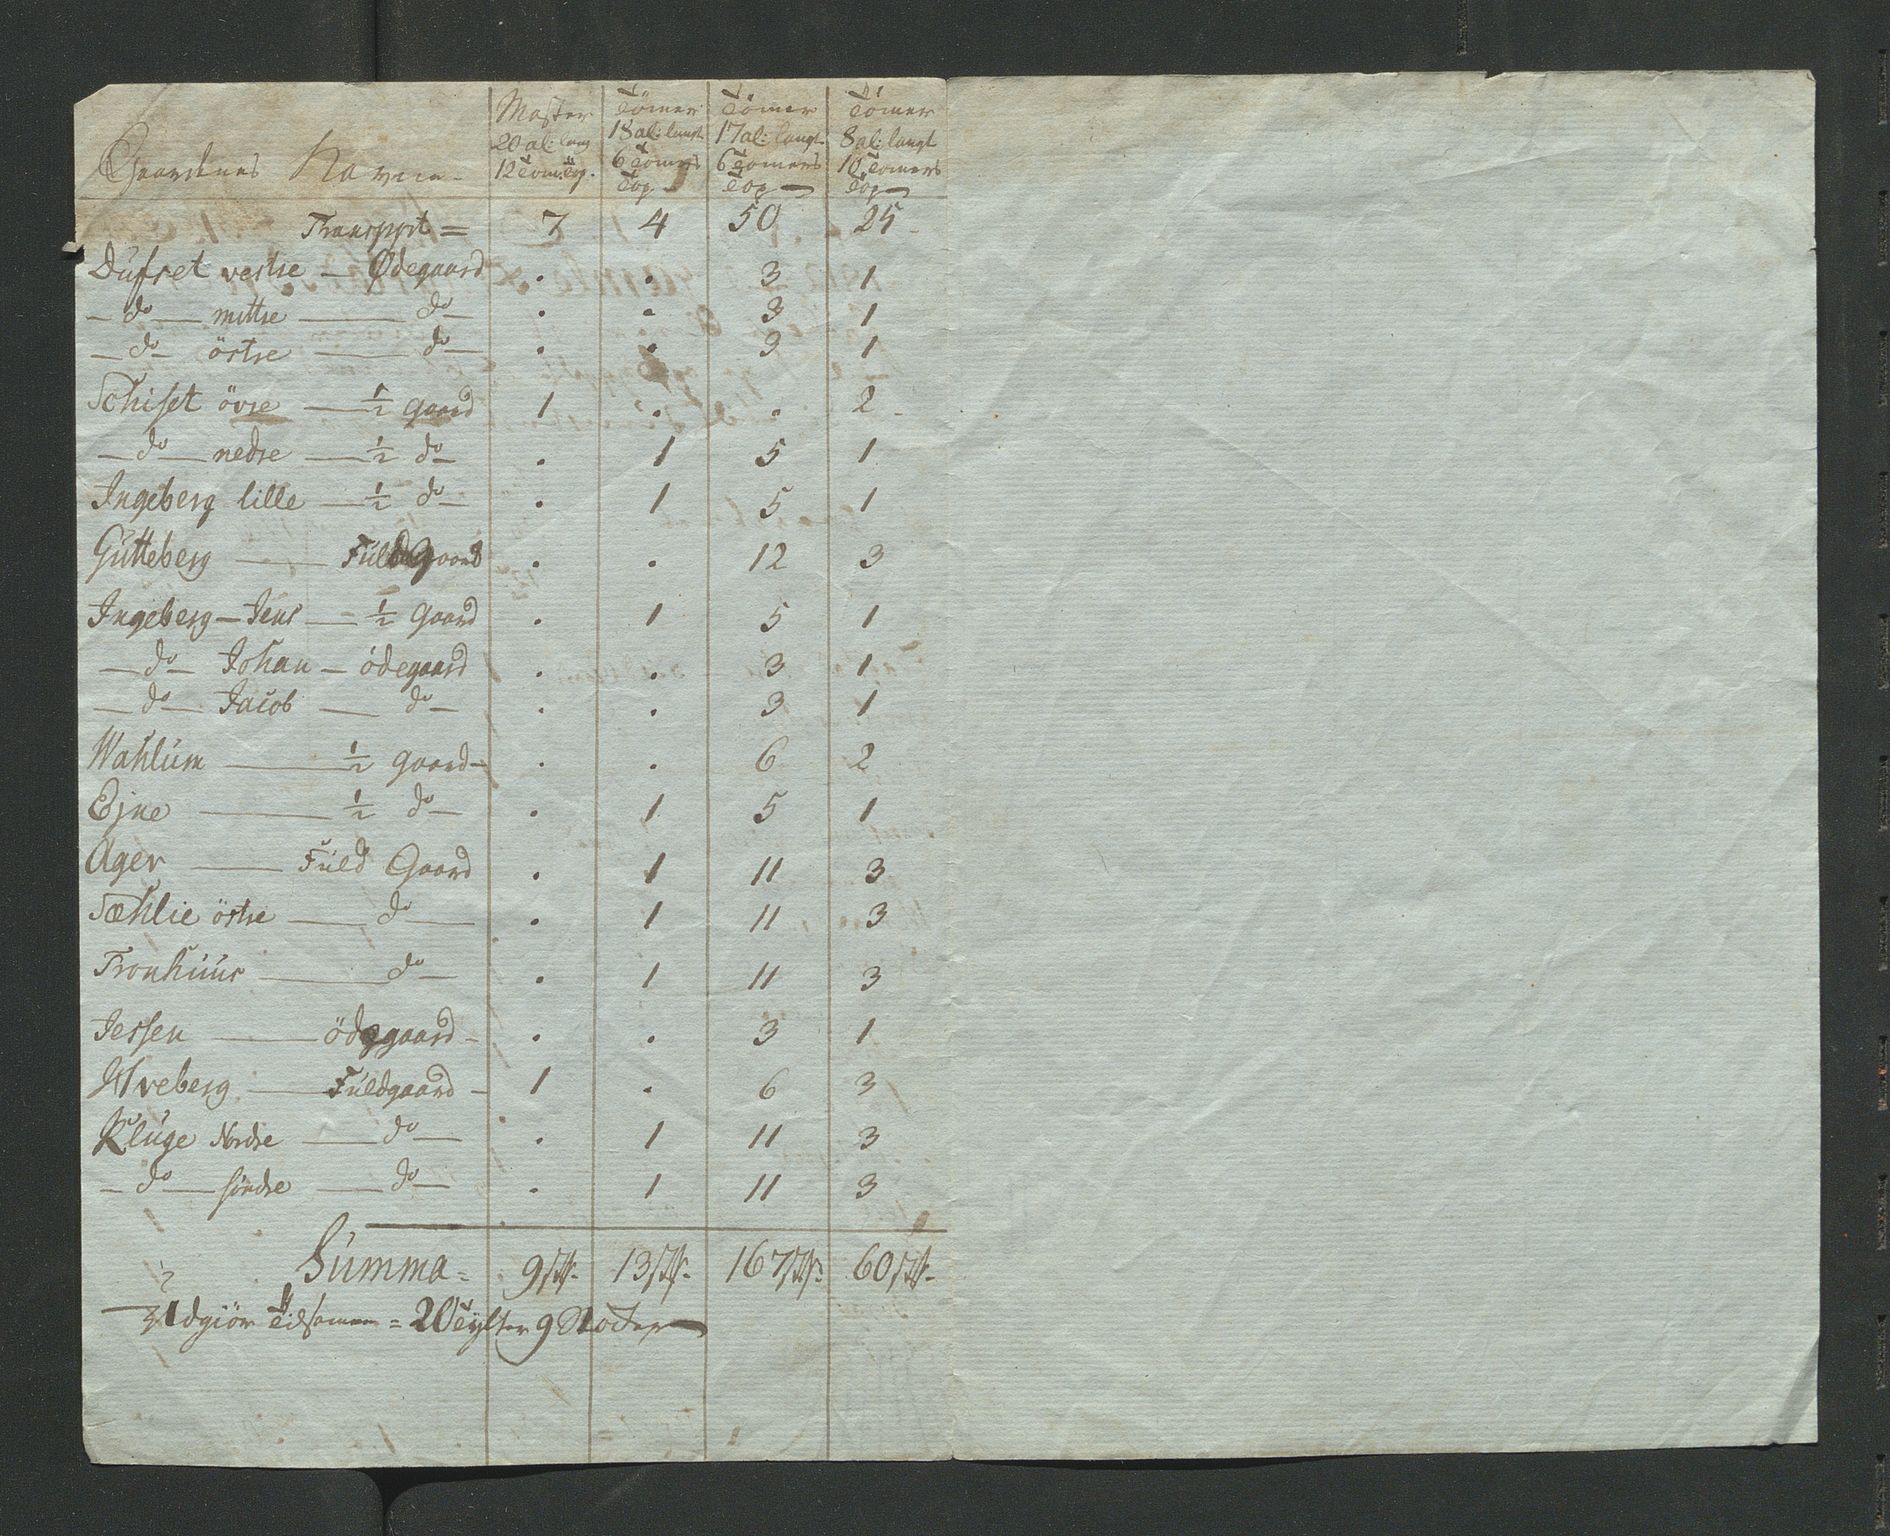 Gaardenes Navne - | Master 20 al: lang 12 Tom: Top. | Tömer 18 al: langt 6 Tomers Top | Tömer 17 al: langt 6 Tomers Top | Tömer 8 al: langt 10 Tomers Top
Transport = 7 4 50 25
Dufset vestre — Ødegaard . . 3 1
— do — mittre — do — . . 3 1
— do — östre — do — . . 3 1
Schiset övre — 1/2 gaard 1 . . 2
— do — nedre — 1/2 do — . 1 5 1
Ingeberg lille — 1/2 do — . 1 5 1
Gutteberg — Fuld Gaard . . 12 3
Ingeberg — Jens — 1/2 Gaard . 1 5 1
— do — Johan — ödegaard . . 3 1
— do — Jacob — do — . . 3 1
Wahlum — 1/2 gaard — . . 6 2
Ejne — 1/2 do — . 1 5 1
Ager — Fuld Gaard . 1 11 3
Sæhlie östre — do — . 1 11 3
Fronhuus — do — . 1 11 3
Jessen — ödegaard — . . 3 1
Alveberg — Fuldgaard — 1 . 6 3
Kluge Nordre — do — . 1 11 3
— do — söndre — do — . 1 11 3
Summa = 9 st. 13 st. 167 st. 60 st.
Udgiör Tilsamen = 20 Tylter 9 Stocker